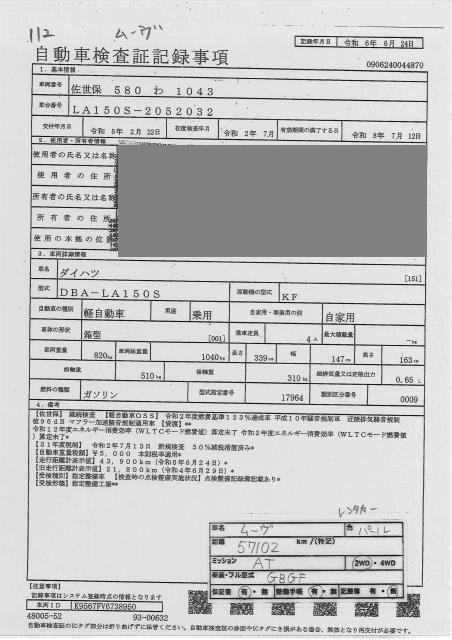 112 ムーヴ
自動車検査証記録事項
記録年月日 令和 6年 6月 24日
0906240044870
1. 基本情報
車両番号 佐世保 580 わ 1043
車台番号 LA150S-2052032
交付年月日 令和 5年 2月 22日 初度検査年月 令和 2年 7月 有効期間の満了する日 令和 8年 7月 12日
2. 使用者・所有者情報
使用者の氏名又は名称
使用者の住所
所有者の氏名又は名称
所有者の住所
使用の本拠の位置
3. 車両詳細情報
車名 ダイハツ [151]
型式 DBA-LA150S 原動機の型式 KF
自動車の種別 軽自動車 用途 乗用 自家用・事業用の別 自家用
車体の形状 箱型 [001] 乗車定員 4人 最大積載量 -kg
車両重量 820kg 車両総重量 1040kg 長さ 339cm 幅 147cm 高さ 163cm
前軸重 510kg 後軸重 310kg 総排気量又は定格出力 0.65 L
燃料の種類 ガソリン 型式指定番号 17964 類別区分番号 0009
4. 備考
【佐世保】 継続検査 【軽自動車OSS】 令和2年度燃費基準123%達成車 平成10年騒音規制車 近接排気騒音規制
値96dB マフラー加速騒音規制適用車 【受渡】**
令和12年度エネルギー消費効率(WLTCモード燃費値)算定未了 令和2年度エネルギー消費効率(WLTCモード燃費値
)算定未了*
【31年度税制】 令和2年7月13日 新規検査 50%減税措置済み*
【自動車重量税額】 ¥5,000 本則税率適用*
【走行距離計表示値】 43,900km(令和6年6月24日)*
【旧走行距離計表示値】 21,800km(令和4年6月29日)*
【受検種別】指定整備車 【検査時の点検整備実施状況】点検整備記録簿記載あり*
【受検形態】指定整備工場**
レンタカー
車名 ムーヴ 色 パール
距離 57102 km/(特記)
ミッション AT 2WD・4WD
架装・フル型式 GBGF
保証書 有・無 整備手帳 有・無 記録簿 有・無
【注意事項】
記録事項はシステム登録時点の情報となります
車両ID K9567FV6738950
48005-52 93-00632
自動車検査証のICタグ部分は折り曲げずに保管ください。自動車検査証の券面やICタグに き損がある場合、無効となり再交付が必要です。